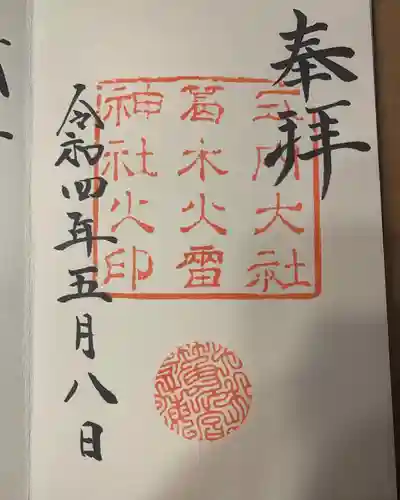 奉拝
所大社
葛木火雷
神社火印
令和四年五月八日